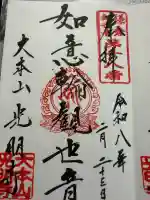 奉拝
令和八年
二月二十三日
如意輪觀世音
大本山光明寺